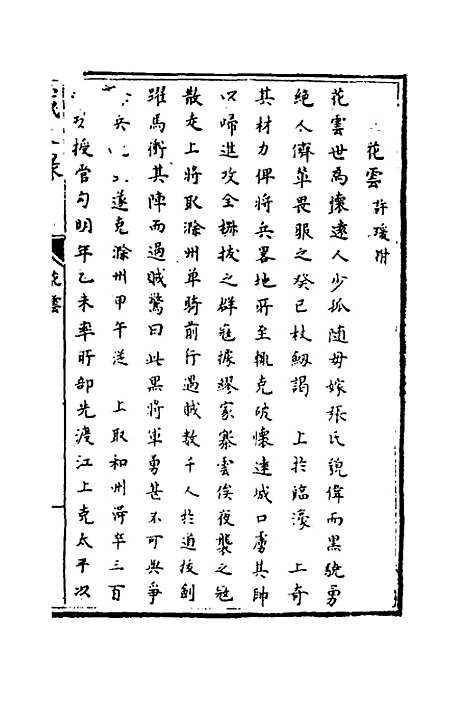 花雲 許瑗附
花雲世為懷遠人少孤隨母嫁張氏貌偉而黑驍勇
絕人儕輩畏服之癸巳杖劒謁 上於臨濠 上奇
其材力俾將兵畧地所至輒克破懷遠城口虜其帥
以歸進攻全椒拔之群寇據繆家寨雲俟夜襲之寇
散走上將取滁州單騎前行遇賊数千人於道拔劍
躍馬衝其陣而過賊驚曰此黑將軍勇甚不可與爭
兵 遂克滁州甲午從 上取和州得卒三百
授管勾明年乙未率所部先渡江上克太平以
花雲